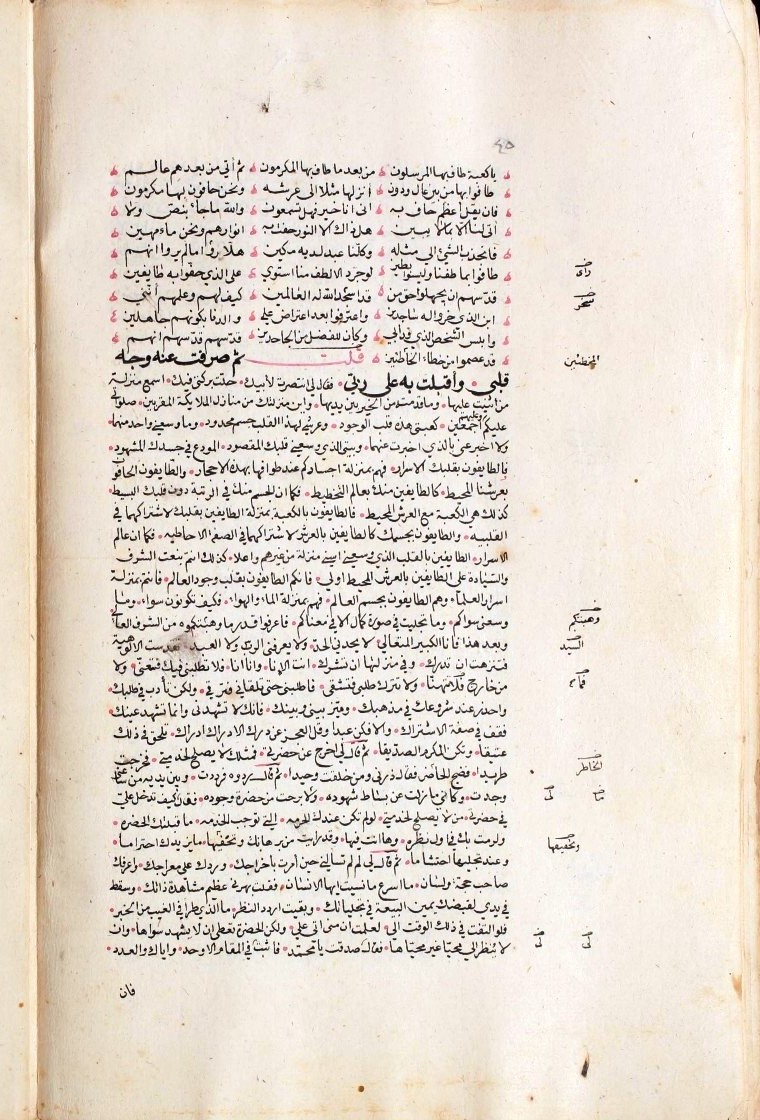 ٤٥
يا كعبة طاف بها المرسلون من بعد ما طاف بها المكرمون ثم أتى من بعدهم عالم
طافوا بها من بين عال ودون أنزلها مثلا الى عرشه ونحن حافون بها مكرمون
فان يقل أعظم حاف به انى انا خير فهل تسمعون والله ما جاء بنص ولا
أتى لنا الا بما لا يبين هل ذاك الا النور حفت به انوارهم ونحن ماء مهين
فانجذب الشيء الى مثله وكلنا عبد لديه مكين هلا رؤا ما لم يروا انهم
طافوا بما طفنا وليسوا بطين لو جرد الالطف منا استوى على الذي حفوا به طايفين
قدسهم ان يجهلوا حق من قد سخر الله له العالمين كيف لهم وعلمهم أنني
ابن الذي خروا له ساجدين واعترفوا بعد اعتراض على والدنا بكونهم جاهلين
وابلس الشخص الذي قد أبى وكان للفضل من الجاحدين قدسهم قدسهم انهم
قد عصموا من خطاء الخاطئين قلت ثم صرفت عنه وجه
قلبي وأقبلت به على ربي فقال لى انتصرت لأبيك حلت بركتى فيك اسمع منزلة
من اثنيت عليها وما قدمته من الخير بين يديها وابن منزلتك من منازل الملايكة المقربين صلواتى
عليكم وعليهم أجمعين كعبتى هذه قلب الوجود وعرشى لهذا القلب جسم محدود وما وسعنى واحد منهما
ولا اخبر عنى بالذى اخبرت عنهما وبيتى الذى وسعنى قلبك المقصود المودع فى جسدك المشهود
فالطايفون بقلبك الاسرار فهم بمنزلة اجسادكم عند طوافها بهذه الاحجار والطايفون الحافون
بعرشنا المحيط كالطايفين منك بعالم التخطيط فكما ان الجسم منك فى الرتبة دون قلبك البسيط
كذلك هى الكعبة مع العرش المحيط فالطايفون بالكعبة بمنزلة الطايفين بقلبك لاشتراكهما فى
القلبيه والطايفون بجسمك كالطايفين بالعرش لاشتراكهما فى الصفة الاحاطيه فكما ان عالم
الاسرار الطايفين بالقلب الذى وسعنى اسنى منزلة من غيرهم واعلا كذلك انتم بنعت الشرف
والسيادة على الطايفين بالعرش المحيط اولى فانكم الطايفون بقلب وجود العالم فانتم بمنزلة
اسرار العلماء وهم الطايفون بجسم العالم فهم بمنزلة الماء والهواء فكيف تكونون سواء وما
وسعنى سواكم وما تجليت فى صورة كمال الا فى معناكم فاعرفوا قدر ما وهبتكموه من الشرف العالى
وبعد هذا فانا الكبير المتعالى لا يحدنى الحد ولا يعرفنى الرب ولا العبد تقدست الالوهية
فتنزهت ان تدرك وفى منزلتها ان تشرك انت الانا وانا انا فلا تطلبنى فيك فتتعنى ولا
من خارج فلا تتهنا ولا تترك طلبى فتشقى فاطلبنى حتى تلقانى فترقى ولكن تأدب فى طلبك
واحذر عند شروعك فى مذهبك وميز بينى وبينك فانك لا تشهدنى وانما تشهد عينك
فقف فى صفة الاشتراك والا فكن عبدا وقل العجز عن درك الادراك ادراك تلحق فى ذلك
عتيقا وتكن المكرم الصديقا ثم قال لى اخرج عن حضرتى فمثلك لا يصلح لخدمتى فخرجت
طريدا فضج الحاضر فقال ذرنى ومن خلقت وحيدا ثم قال ردوه فرددت وبين يديه من ساعتى
وجدت وكأنى ما زلت عن بساط شهوده ولا برحت من حضرة وجوده فقال كيف تدخل على
فى حضرتى من لا يصلح لخدمتى لو لم تكن عندك الحرمه التى توجب الخدمه ما قبلتك الحضره
ولرمت بك فى اول نظره وها انت فيها وقد رايت من برهانك وتحفيها ما يزيدك احتراما
وعند تجليها احتشاما ثم قال لى لم لم تسالنى حين امرت باخراجك وردك على معراجك واعرفك
صاحب حجة ولسان ما اسرع ما نسيت ايها الانسان فقلت بهرنى عظيم مشاهدة ذاتك وسقط
فى يدى لقبضك يمين البيعة فى تجلياتك وبقيت اردد النظر ما الذى طرا فى الغيب من الخبر
فلو التفت فى ذلك الوقت الى لعلمت ان منى اتى على ولكن الحضرة تعطى ان لا يشهد سواها وان
لا ينظر الى محيا غير محياها فقال صدقت يا محمد فاثبت فى المقام الاوحد واياك والعدد
فان
المخطئين
وهبتكم
السيد
الخاطر
وتحفيها